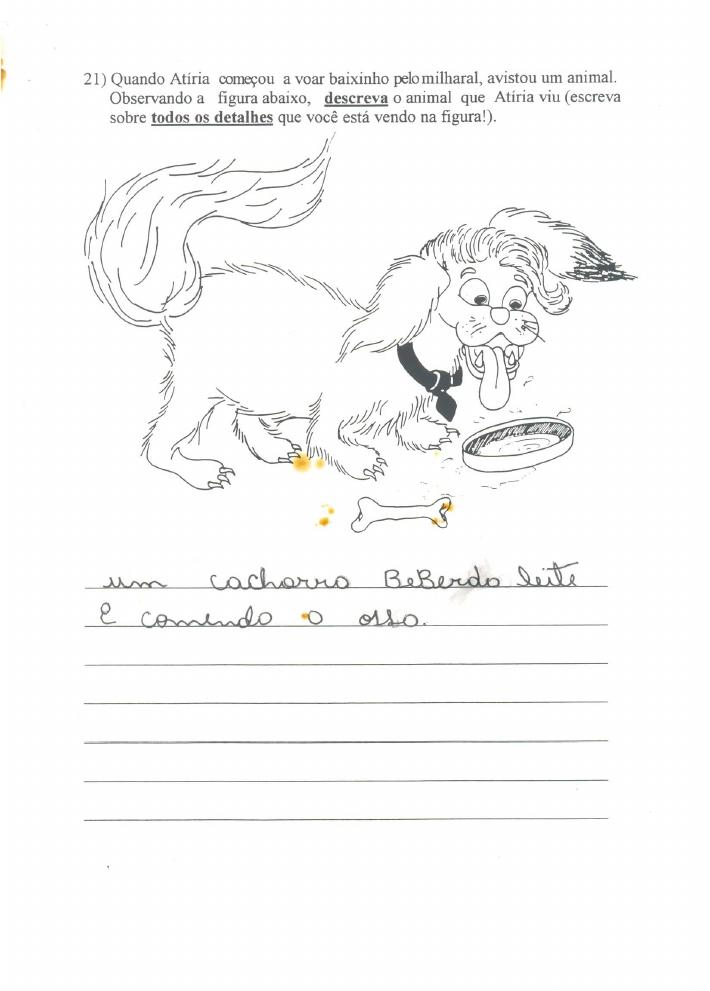 21) Quando Atíria começou a voar baixinho pelo milharal, avistou um animal.
Observando a figura abaixo, descreva o animal que Atíria viu (escreva
sobre todos os detalhes que você está vendo na figura!).
um cachorro BeBerdo leite
E comendo o osso.